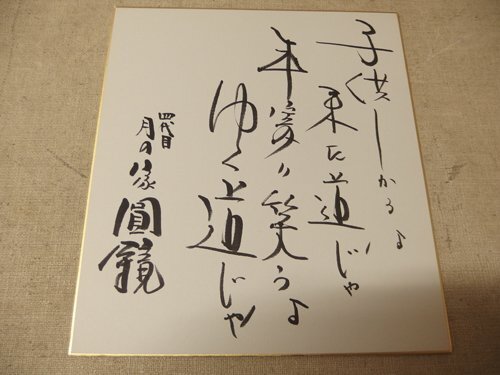 子供しかるよ
来た道じゃ
年寄り笑うよ
ゆく道じゃ
四代目
月の家
圓鏡